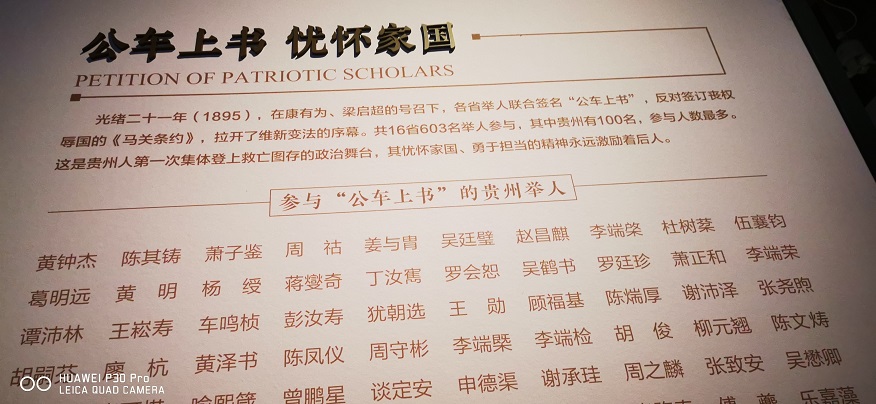 公车上书 忧怀家国
PETITION OF PATRIOTIC SCHOLARS
光绪二十一年（1895），在康有为、梁启超的号召下，各省举人联合签名“公车上书”，反对签订丧权
辱国的《马关条约》，拉开了维新变法的序幕。共16省603名举人参与，其中贵州有100名，参与人数最多。
这是贵州人第一次集体登上救亡图存的政治舞台，其忧怀家国、勇于担当的精神永远激励着后人。
参与“公车上书”的贵州举人
黄钟杰 陈其铸 萧子鉴 周祜 姜与胄 吴廷璧 赵昌麒 李端棨 杜树棻 伍襄钧
葛明远 黄明 杨绶 蒋燮奇 丁汝寯 罗会恕 吴鹤书 罗廷珍 萧正和 李端荣
谭沛林 王崧寿 车鸣桢 彭汝寿 犹朝选 王勋 顾福基 陈煓厚 谢沛泽 张尧煦
廖杭 黄泽书 陈凤仪 周守彬 李端檢 胡俊 柳元翘 陈文焘
曾鹏星 谈定安 申德渠 谢承珪 周之麟 张致安 吴懋卿
HUAWEI P30 Pro
LEICA QUAD CAMERA